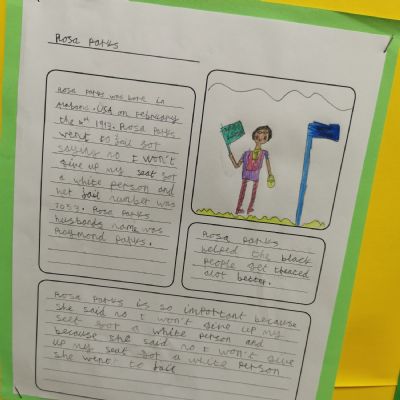 Rosa Parks
Rosa Parks was born in
Alabama. USA on February
the 4th 1913. Rosa Parks
went to jail for
saying no I won't
give up my seat for
a white person and
her jail number was
7053. Rosa Parks
husbands name was
Raymond Parks.
Rosa Parks
helped the black
people get treated
alot better.
Rosa Parks is so important because
she said no I won't give up my
seet for a white person and
because she said no I won't give
up my seat for a white person
she went to jail